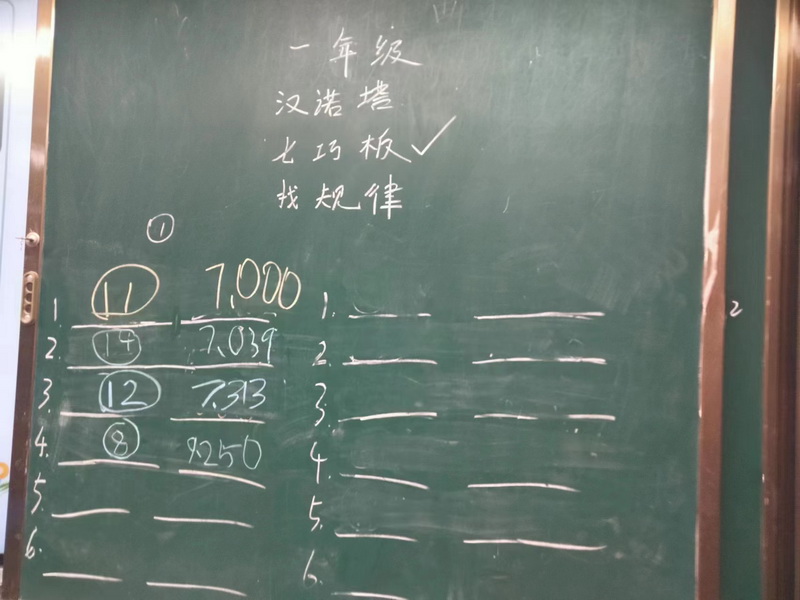 一年级
汉诺塔
七巧板✓
找规律
①
1. ⑪ 7.000
2. ⑭ 7.039
3. ⑫ 7.313
4. ⑧ 9.250
5.
6.
1.
2.
3.
4.
5.
6.
2